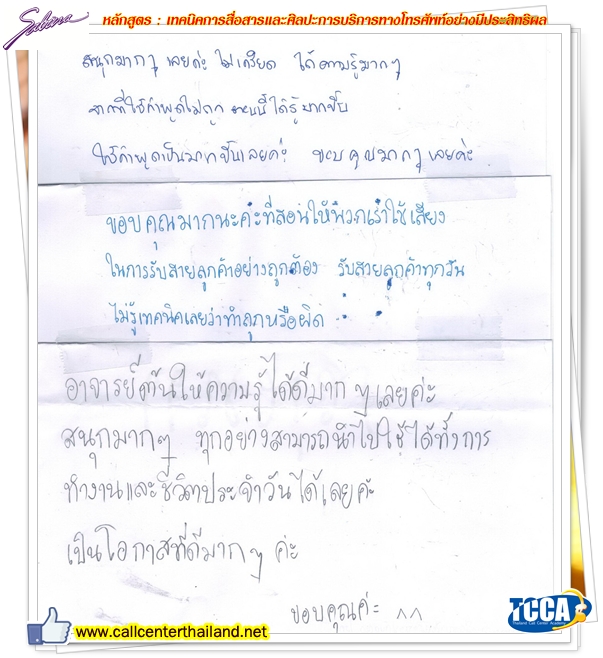 Sabina
หลักสูตร : เทคนิคการสื่อสารและศิลปะการบริการทางโทรศัพท์อย่างมีประสิทธิผล
สนุกมากๆ เลยค่ะ ไม่เครียด ได้ความรู้มากๆ
จากที่ใช้คำพูดไม่ถูก ตอนนี้ได้รู้มากขึ้น
ใช้คำพูดเป็นมากขึ้นเลยค่ะ ขอบคุณมากๆ เลยค่ะ
ขอบคุณมากนะค่ะที่สอนให้พวกเราใช้เสียง
ในการรับสายลูกค้าอย่างถูกต้อง รับสายลูกค้าทุกวัน
ไม่รู้เทคนิคเลยว่าทำถูกหรือผิด
อาจารย์ต้นให้ความรู้ได้ดีมาก ๆ เลยค่ะ
สนุกมากๆ ทุกอย่างสามารถนำไปใช้ได้ทั้งการ
ทำงานและชีวิตประจำวันได้เลยค่ะ
เป็นโอกาสที่ดีมาก ๆ ค่ะ
ขอบคุณค่ะ ^^
www.callcenterthailand.net
TCCA
Thailand Call Center Academy